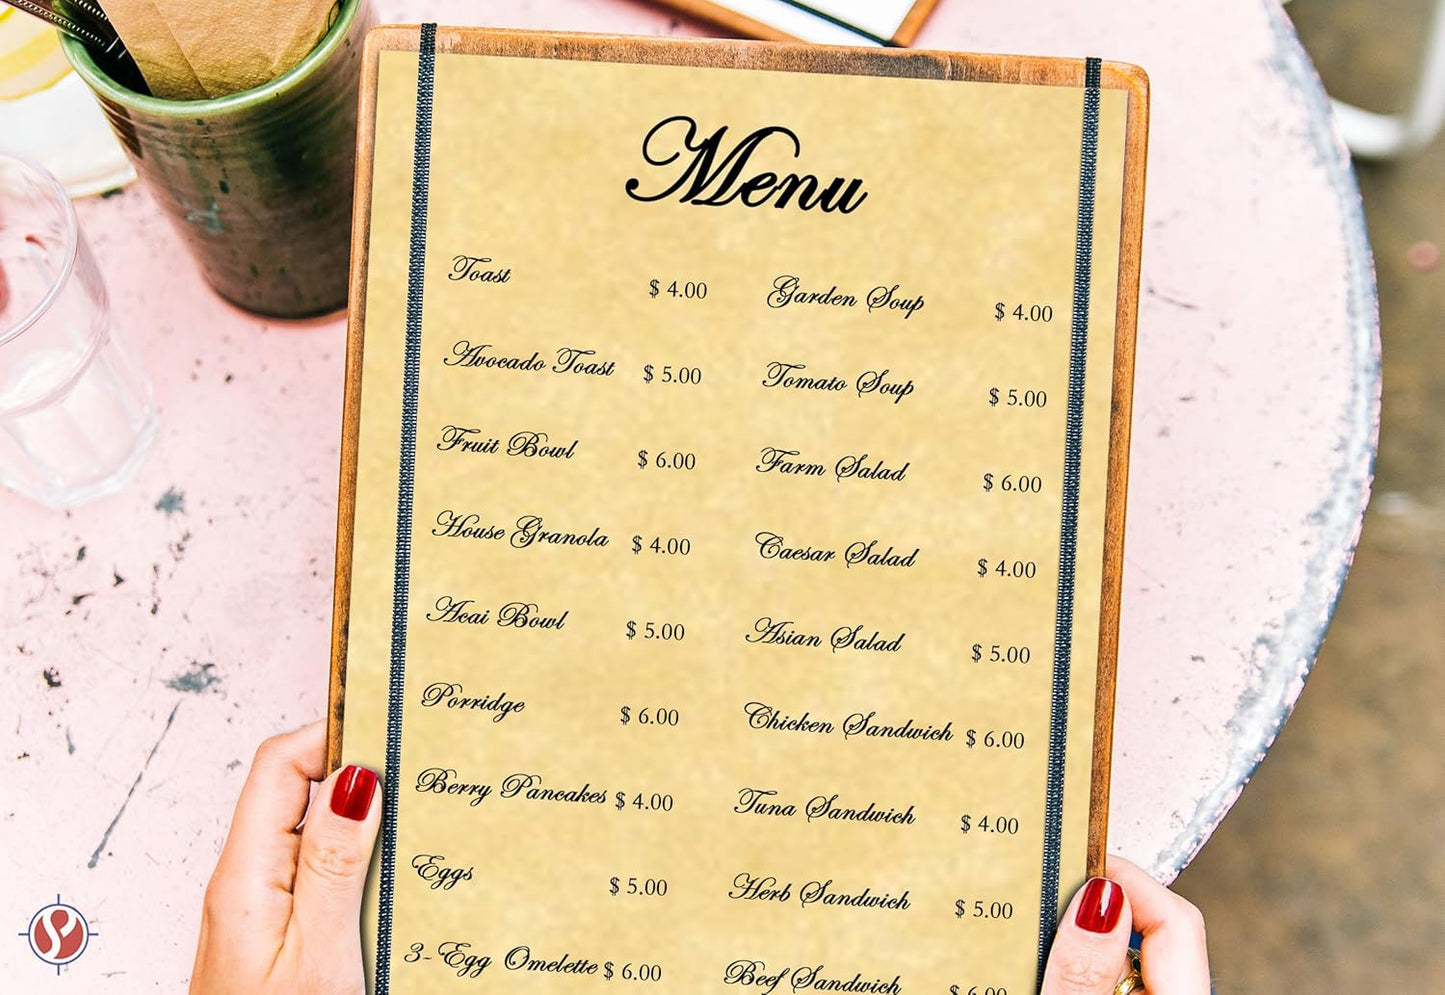 Menu
Toast $ 4.00
Avocado Toast $ 5.00
Fruit Bowl $ 6.00
House Granola $ 4.00
Acai Bowl $ 5.00
Porridge $ 6.00
Berry Pancakes $ 4.00
Eggs $ 5.00
3-Egg Omelette $ 6.00
Garden Soup $ 4.00
Tomato Soup $ 5.00
Farm Salad $ 6.00
Caesar Salad $ 4.00
Asian Salad $ 5.00
Chicken Sandwich $ 6.00
Tuna Sandwich $ 4.00
Herb Sandwich $ 5.00
Beef Sandwich $ 6.00